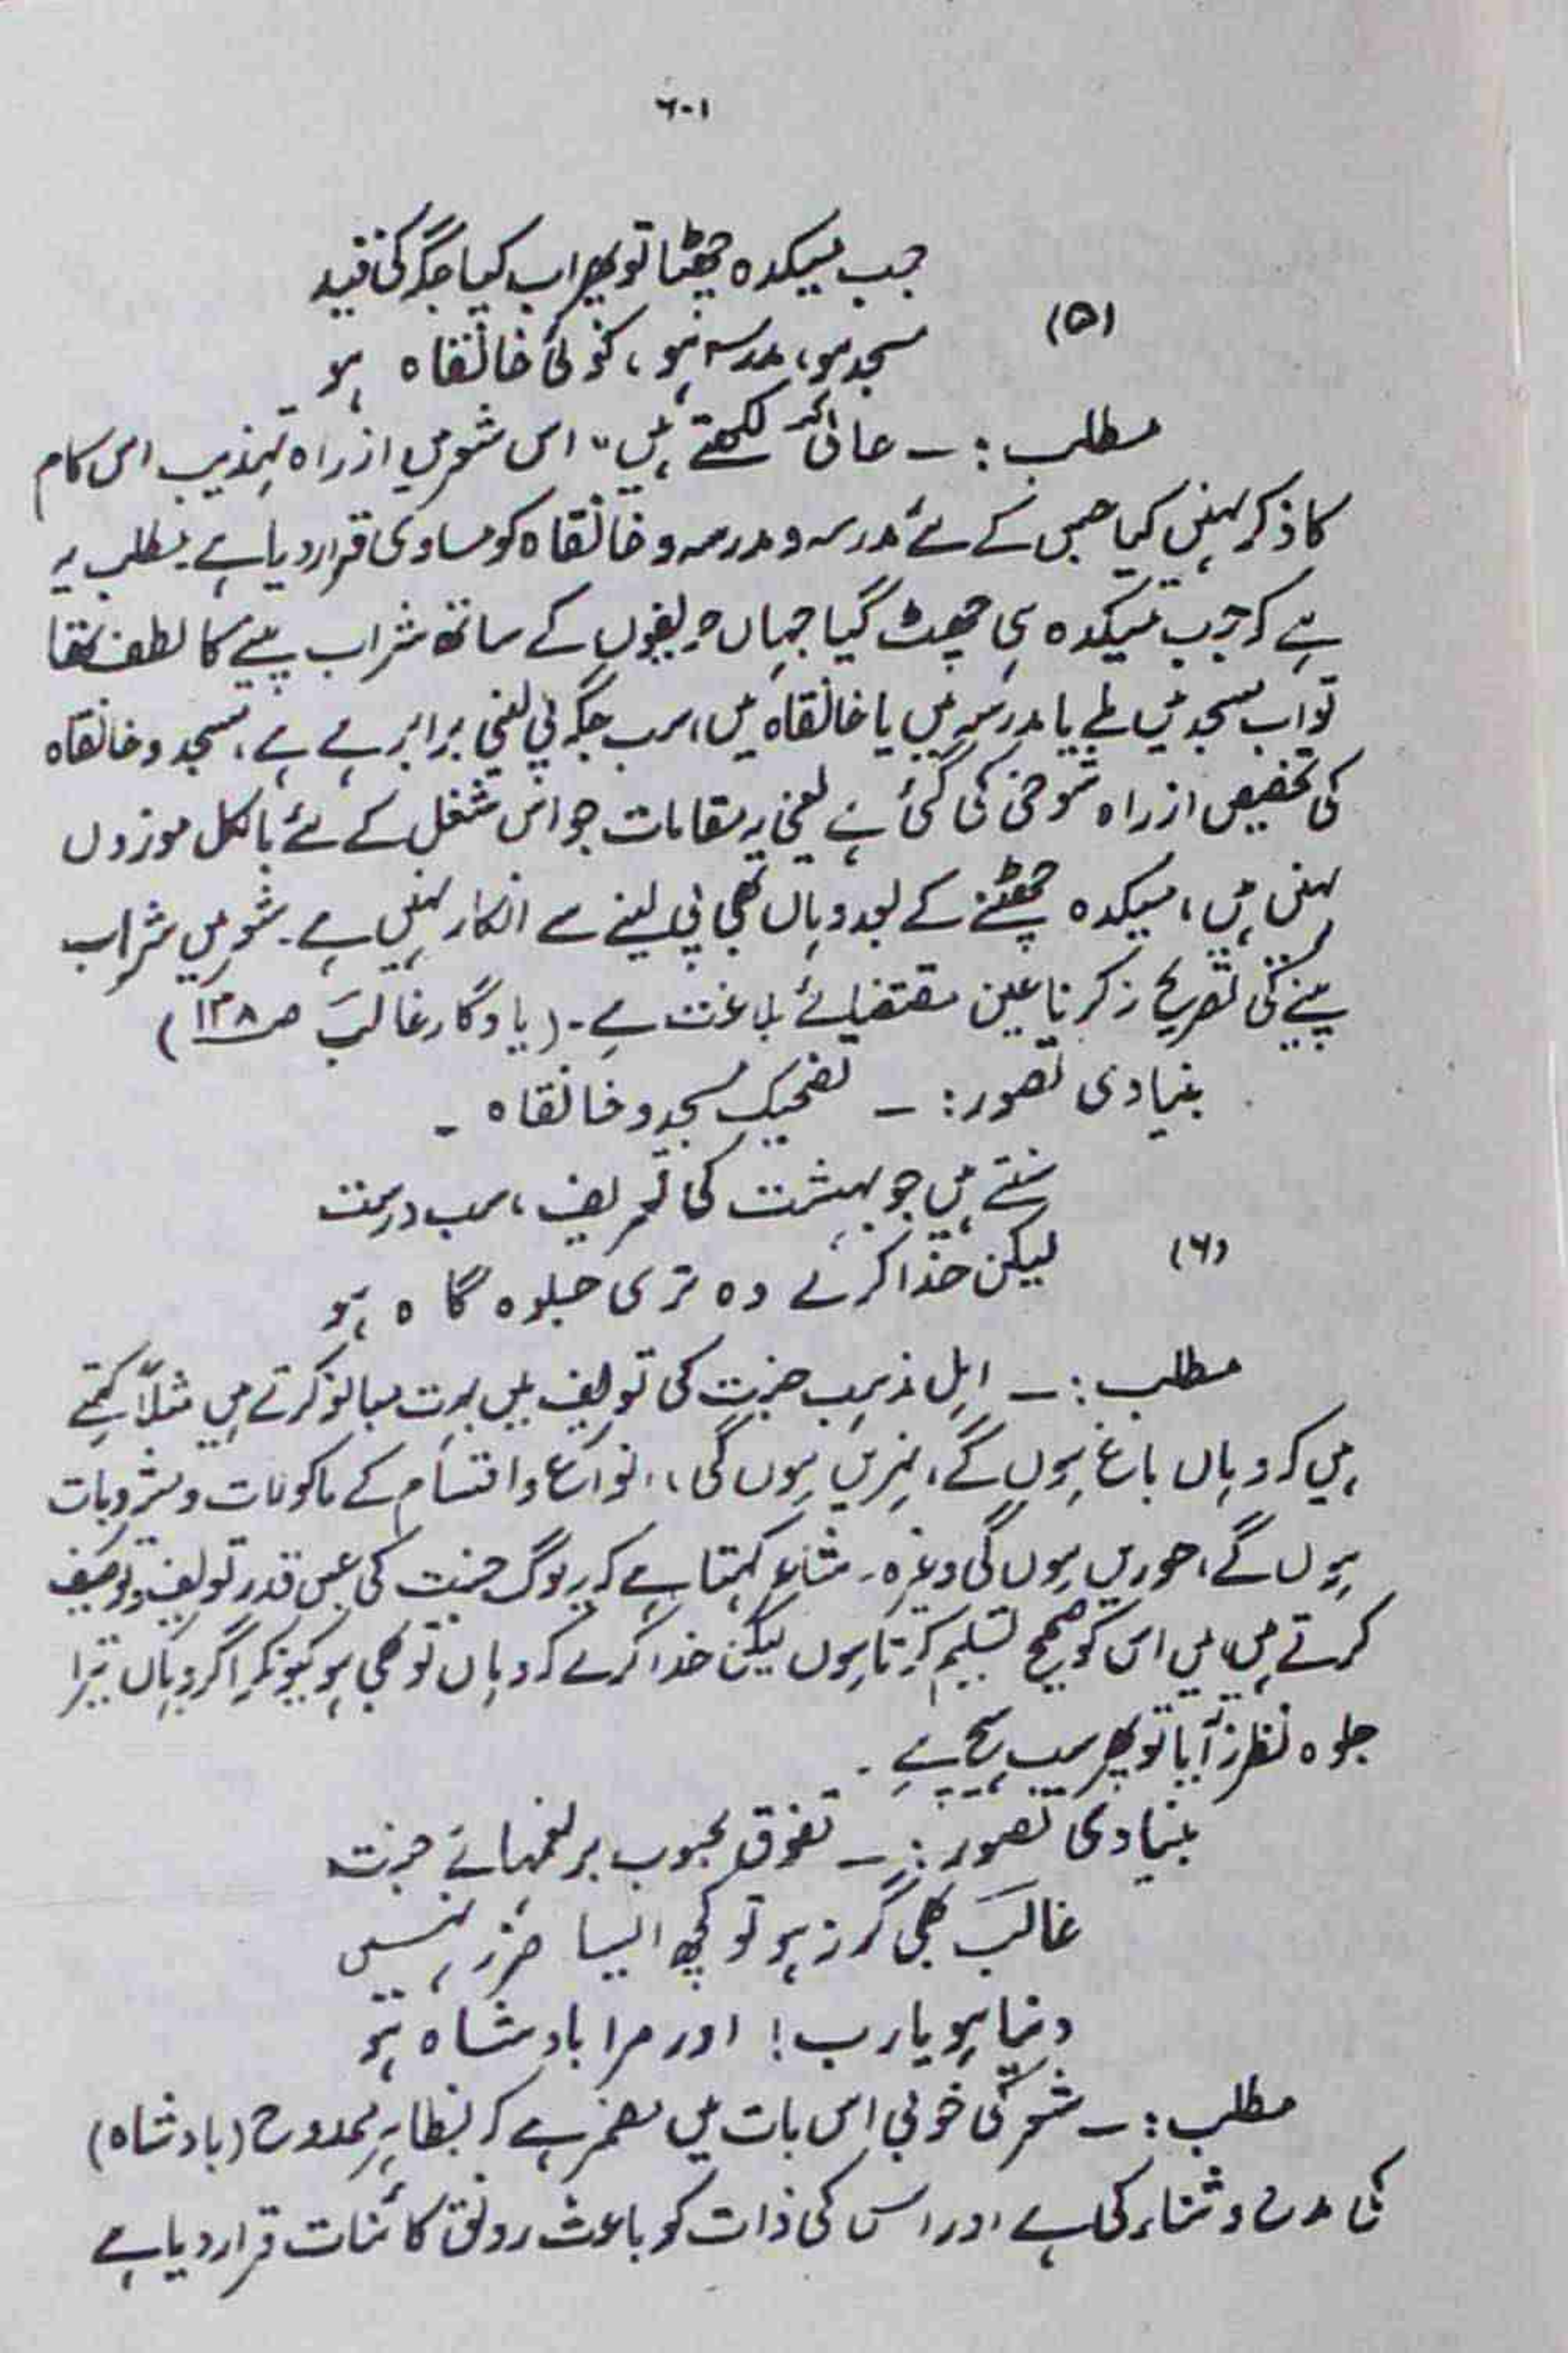 ۶۰۱
جب میکدہ چھٹا تو پھر اب کیا جگہ کی قید
(۵)
مسجد ہو، مدرسہ ہو، کوئی خانقاہ ہو
مطلب :۔ حالیؔ لکھتے ہیں "اس شعر میں از راہ تہذیب اس کام
کا ذکر نہیں کیا جس کے لئے مدرسہ و مدرسہ و خانقاہ کو مساوی قرار دیا ہے۔ مطلب یہ
ہے کہ جب میکدہ ہی چھٹ گیا جہاں حریفوں کے ساتھ شراب پینے کا لطف تھا
تو اب مسجد میں ملے یا مدرسہ میں یا خانقاہ میں، سب جگہ پی لینی برابر ہے، مسجد و خانقاہ
کی تخصیص از راہ شوخی کی گئی ہے یعنی یہ مقامات جو اس شغل کے لئے بالکل موزوں
نہیں ہیں، میکدہ چھٹنے کے بعد وہاں بھی پی لینے سے انکار نہیں ہے۔ شعر میں شراب
پینے کی تصریح نہ کرنا عین مقتضائے بلاغت ہے۔ (یادگار غالبؔ ص ۱۳۸)
بنیادی تصور :۔ تضحیک مسجد و خانقاہ ۔
سنتے ہیں جو بہشت کی تعریف، سب درست
(۶)
لیکن خدا کرے وہ تری جلوہ گاہ ہو
مطلب :۔ اہل مذہب جنت کی تعریف میں بہت مبالغہ کرتے ہیں مثلاً کہتے
ہیں کہ وہاں باغ ہوں گے، نہریں ہوں گی، انواع و اقسام کے ماکولات و مشروبات
ہوں گے، حوریں ہوں گی وغیرہ۔ شاعر کہتا ہے کہ یہ لوگ جنت کی جس قدر تعریف و توصیف
کرتے ہیں، میں اس کو صحیح تسلیم کرتا ہوں لیکن خدا کرے کہ وہاں تو بھی ہو کیونکہ اگر وہاں تیرا
جلوہ نظر نہ آیا تو پھر سب ہیچ ہے ۔
بنیادی تصور :۔ تفوق محبوب بر نعمہائے جنت
غالبؔ بھی گر نہ ہو تو کچھ ایسا ضرر نہیں
دنیا ہو یارب! اور مرا بادشاہ ہو
مطلب :۔ شعر کی خوبی اس بات میں مضمر ہے کہ بظاہر ممدوح (بادشاہ)
کی مدح و ثناء کی ہے اور اس کی ذات کو باعث رونق کائنات قرار دیا ہے